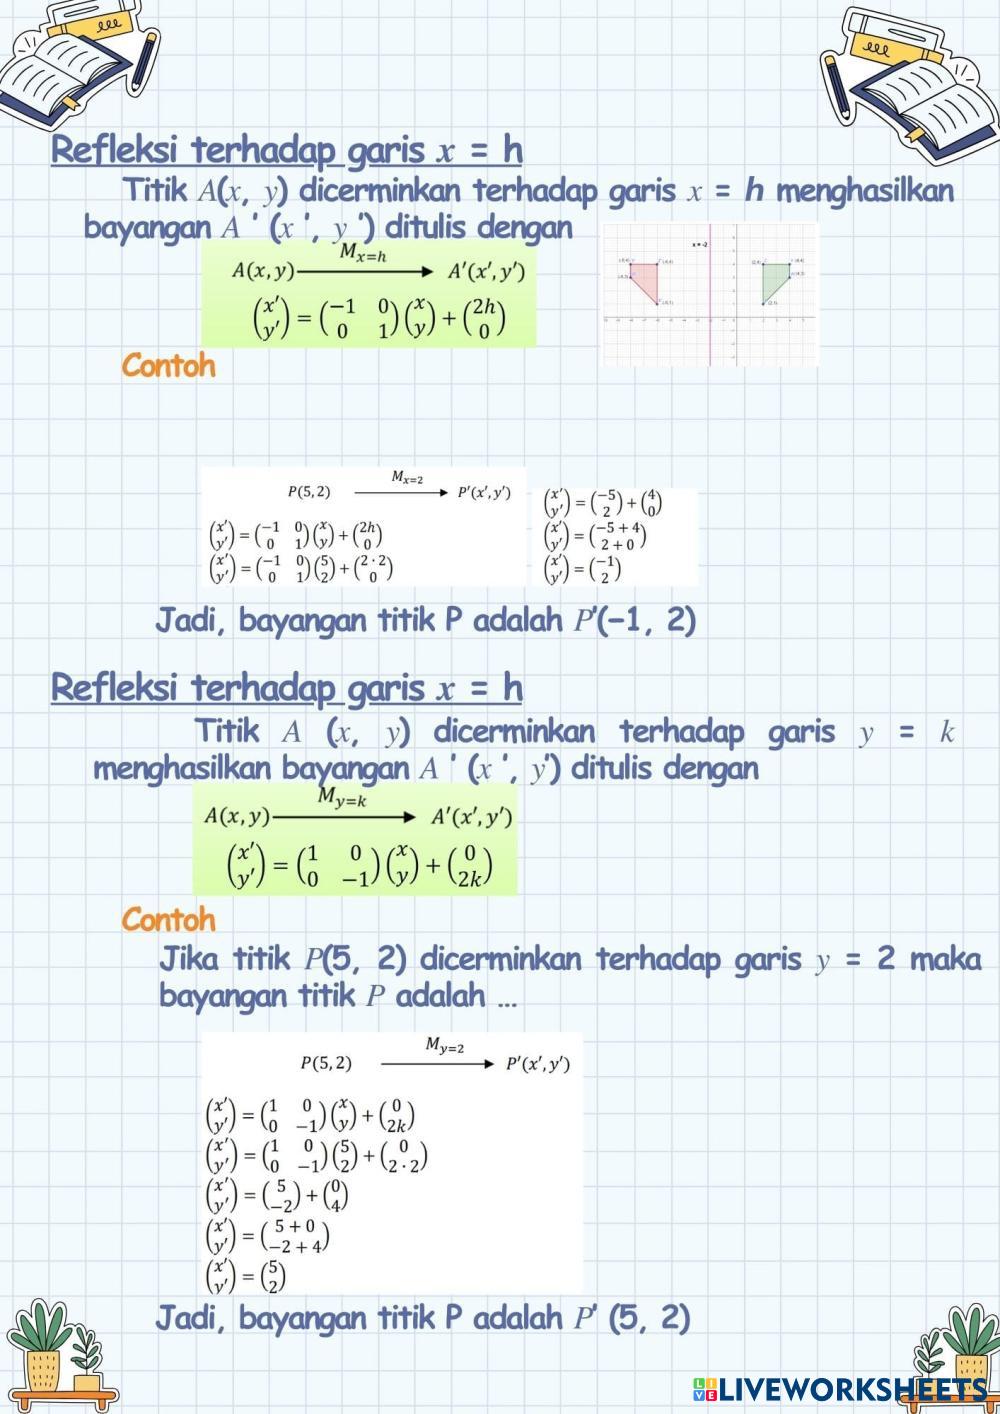 Refleksi terhadap garis x = h
Titik A(x, y) dicerminkan terhadap garis x = h menghasilkan
bayangan A ' (x ', y ') ditulis dengan
A(x, y) ⟶ A'(x', y')
M_{x=h}
(x' y') = (−1 0 0 1)(x y) + (2h 0)
x = -2
Contoh
M_{x=2}
P(5, 2) ⟶ P'(x', y')
(x' y') = (−1 0 0 1)(x y) + (2h 0)
(x' y') = (−1 0 0 1)(5 2) + (2 · 2 0)
(x' y') = (−5 2) + (4 0)
(x' y') = (−5 + 4 2 + 0)
(x' y') = (−1 2)
Jadi, bayangan titik P adalah P'(−1, 2)
Refleksi terhadap garis x = h
Titik A (x, y) dicerminkan terhadap garis y = k
menghasilkan bayangan A ' (x ', y') ditulis dengan
M_{y=k}
A(x, y) ⟶ A'(x', y')
(x' y') = (1 0 0 −1)(x y) + (0 2k)
Contoh
Jika titik P(5, 2) dicerminkan terhadap garis y = 2 maka
bayangan titik P adalah ...
M_{y=2}
P(5, 2) ⟶ P'(x', y')
(x' y') = (1 0 0 −1)(x y) + (0 2k)
(x' y') = (1 0 0 −1)(5 2) + (0 2 · 2)
(x' y') = (5 −2) + (0 4)
(x' y') = (5 + 0 −2 + 4)
(x' y') = (5 2)
Jadi, bayangan titik P adalah P' (5, 2)
LIVE LIVEWORKSHEETS